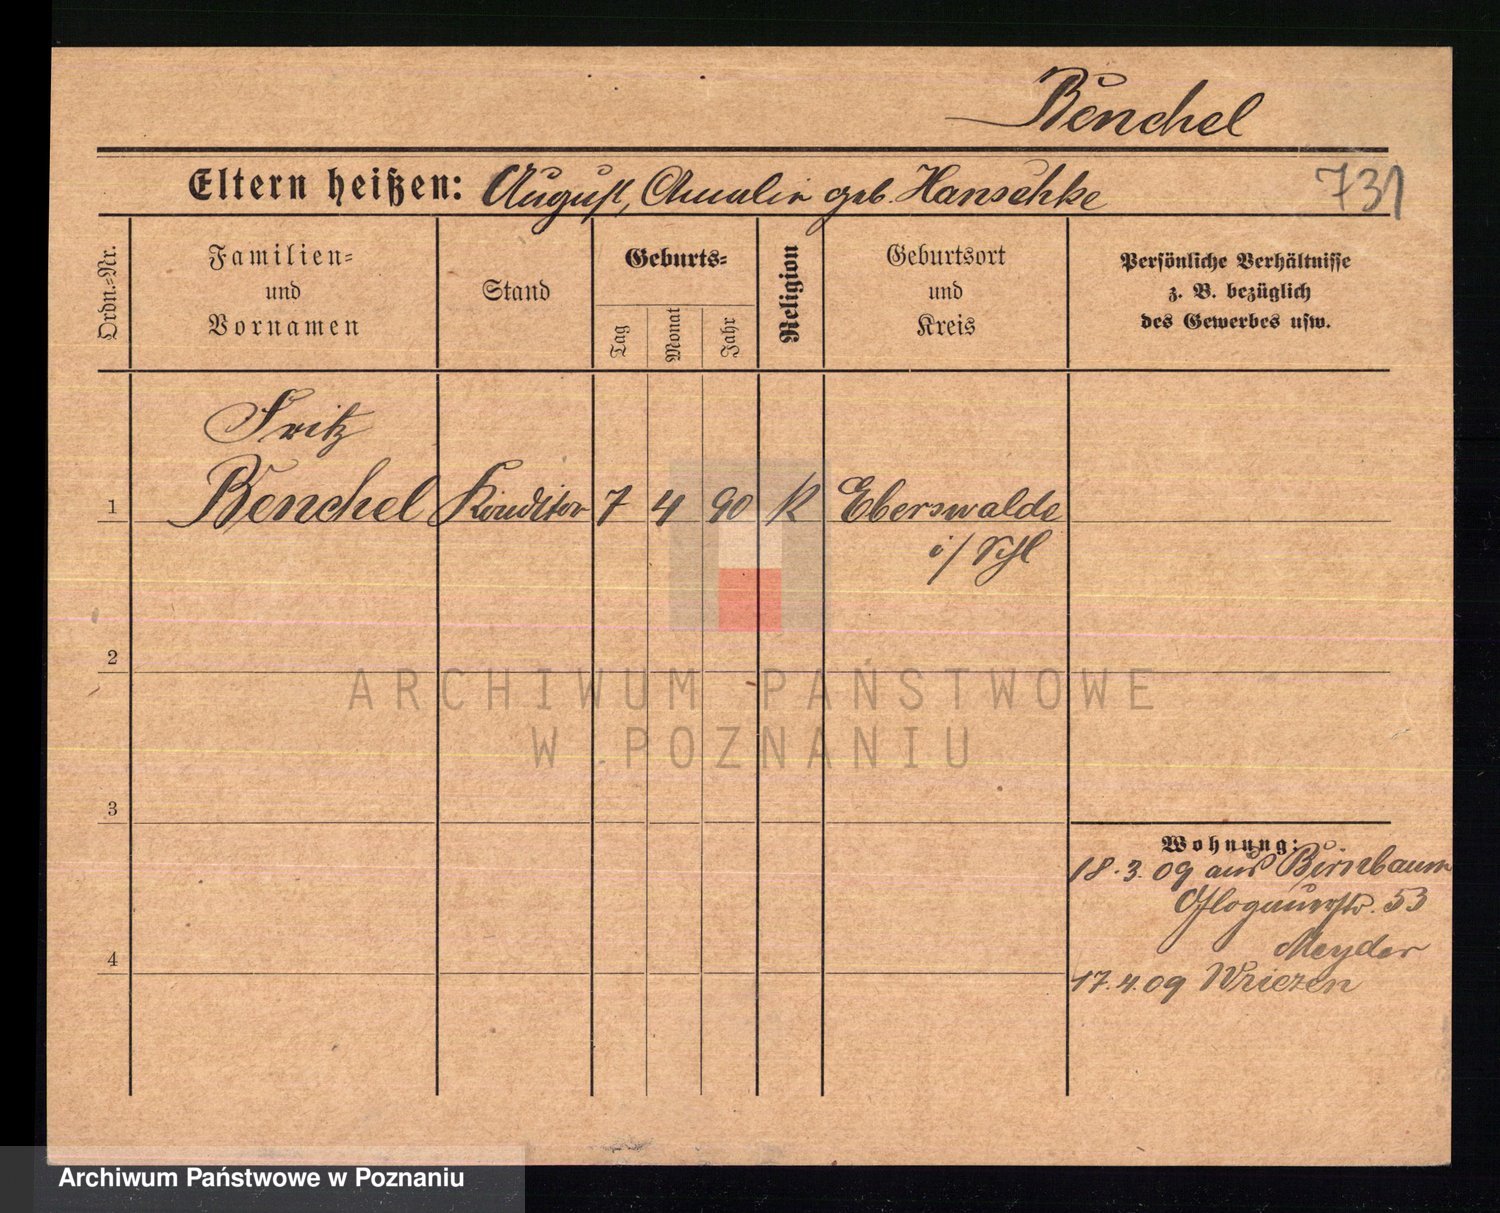 Benchel
Eltern heißen: August, Amalie geb. Hanschke
731
Ordn.-Nr.
Familien-
und
Vornamen
Stand
Geburts-
Tag
Monat
Jahr
Religion
Geburtsort
und
Kreis
Persönliche Verhältnisse
z. B. bezüglich
des Gewerbes usw.
Fritz
1 Benchel Konditor 7 4 90 K Eberswalde
i/Schl
2
3
4
Wohnung:
18.3.09 aus Birnbaum
Glogauerstr. 53
Meyder
17.4.09 Wriezen
ARCHIWUM PAŃSTWOWE
W POZNANIU
Archiwum Państwowe w Poznaniu